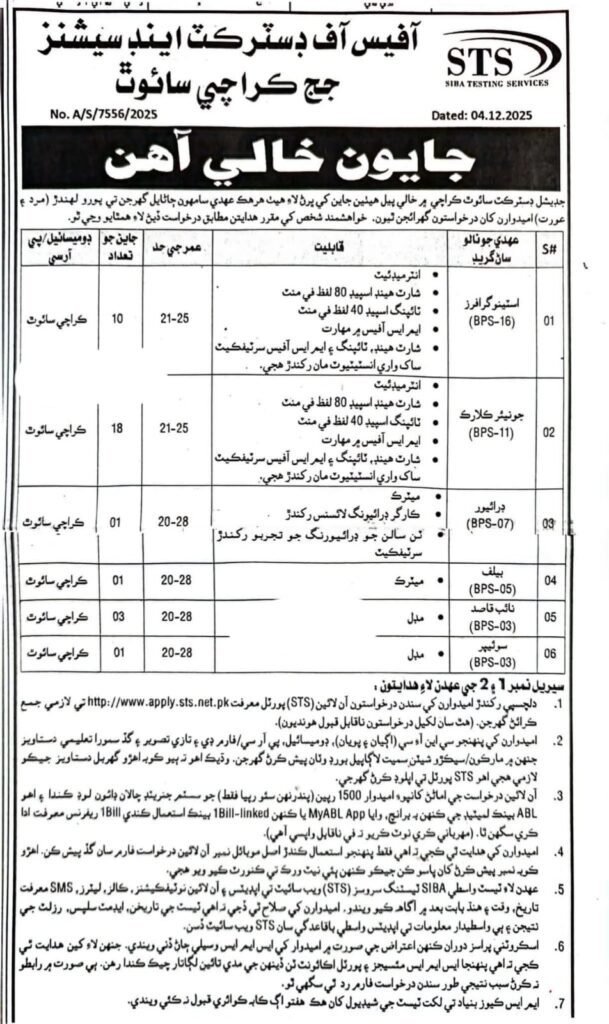 آفيس آف ڊسٽرڪٽ اينڊ سيشنز
جج ڪراچي سائوٿ
STS
SIBA TESTING SERVICES
No. A/S/7556/2025
Dated: 04.12.2025
جايون خالي آهن
جڊيشل ڊسٽرڪٽ سائوٿ ڪراچي ۾ خالي پيل هيٺين جاين کي ڀرڻ لاءِ هيٺ هر هڪ عهدي سامهون ڄاڻايل گهرجن تي پورو لهندڙ (مرد ۽
عورت) اميدوارن کان درخواستون گهرائجن ٿيون. خواهشمند شخص کي مقرر هدايتن مطابق درخواست ڏيڻ لاءِ همٿايو وڃي ٿو.
S#
عهدي جو نالو
سان گريڊ
قابليت
عمر جي حد
جاين جو
تعداد
ڊوميسائيل/پي
آر سي
01
اسٽينوگرافرز
(BPS-16)
• انٽرميڊئيٽ
• شارٽ هينڊ اسپيڊ 80 لفظ في منٽ
• ٽائپنگ اسپيڊ 40 لفظ في منٽ
• ايم ايس آفيس ۾ مهارت
• شارٽ هينڊ, ٽائپنگ ۽ ايم ايس آفيس سرٽيفڪيٽ
ساک واري انسٽيٽيوٽ مان رکندڙ هجي.
21-25
10
ڪراچي سائوٿ
02
جونيئر ڪلارڪ
(BPS-11)
• انٽرميڊئيٽ
• شارٽ هينڊ اسپيڊ 80 لفظ في منٽ
• ٽائپنگ اسپيڊ 40 لفظ في منٽ
• ايم ايس آفيس ۾ مهارت
• شارٽ هينڊ, ٽائپنگ ۽ ايم ايس آفيس سرٽيفڪيٽ
ساک واري انسٽيٽيوٽ مان رکندڙ هجي.
21-25
18
ڪراچي سائوٿ
03
ڊرائيور
(BPS-07)
• ميٽرڪ
• ڪارگر ڊرائيونگ لائسنس رکندڙ
• ٽن سالن جو ڊرائيورنگ جو تجربو رکندڙ
سرٽيفڪيٽ
20-28
01
ڪراچي سائوٿ
04
بيلف
(BPS-05)
• ميٽرڪ
20-28
01
ڪراچي سائوٿ
05
نائب قاصد
(BPS-03)
• مڊل
20-28
03
ڪراچي سائوٿ
06
سوئيپر
(BPS-03)
• مڊل
20-28
01
ڪراچي سائوٿ
سيريل نمبر 1 ۽ 2 جي عهدن لاءِ هدايتون:
1. دلچسپي رکندڙ اميدوارن کي سندن درخواستون آن لائين (STS) پورٽل معرفت http://www.apply.sts.net.pk تي لازمي جمع
ڪرائڻ گهرجن. (هٿ سان لکيل درخواستون ناقابل قبول هونديون).
2. اميدوارن کي پنهنجو سي اين آءِ سي (اڳيان ۽ پويان), ڊوميسائيل, پي آر سي/فارم ڊي ۽ تازي تصوير ۽ گڏ سمورا تعليمي دستاويز
جنهن ۾ مارڪون/سيڪڙو شيٽن سميت لاڳاپيل بورڊ وٽان پيش ڪرڻ گهرجن. وڌيڪ اهو ته ٻيو ڪو به اهڙو گهربل دستاويز جيڪو
لازمي هجي اهو STS پورٽل تي اپلوڊ ڪرڻ گهرجي.
3. آن لائين درخواست جي امالڻ کانپوءِ اميدوار 1500 رپين (پندرنهن سئو رپيا فقط) جو سسٽم جنريٽڊ چالان ڊائون لوڊ ڪندا ۽ اهو
ABL بينڪ لميٽيڊ جي ڪنهن به برانچ, وايا MyABL App يا ڪنهن 1Bill-linked بينڪ استعمال ڪندي 1Bill ريفرنس معرفت ادا
ڪري سگهن ٿا. (مهرباني ڪري نوٽ ڪريو ته في ناقابل واپسي آهي).
4. اميدوارن کي هدايت ٿي ڪجي ته اهي فقط پنهنجو استعمال ڪندڙ اصل موبائل نمبر آن لائين درخواست فارم سان گڏ پيش ڪن. اهڙو
ڪو به نمبر پيش ڪرڻ کان پاسو ڪن جيڪو ڪنهن ٻئي نيٽ ورڪ تي ڪنورٽ ڪيو ويو هجي.
5. عهدن لاءِ ٽيسٽ واسطي SIBA ٽيسٽنگ سروسز (STS) ويب سائيٽ تي اپڊيٽس ۽ آن لائين نوٽيفڪيشنز, ڪالز, ليٽرز, SMS معرفت
تاريخ, وقت ۽ هنڌ بابت بعد ۾ آگاهه ڪيو ويندو. اميدوارن کي صلاح ٿي ڏجي ته اهي ٽيسٽ جي تاريخن, ايڊمٽ سلپس, رزلٽ جي
نتيجن ۽ ٻي واسطيدار معلومات تي اپڊيٽس واسطي باقاعدگي سان STS ويب سائيٽ ڏسن.
6. اسڪروٽني پراسز دوران ڪنهن اعتراض جي صورت ۾ اميدوار کي ايس ايم ايس وسيلي ڄاڻ ڏني ويندي. جنهن لاءِ کين هدايت ٿي
ڪجي ته اهي پنهنجا ايس ايم ايس مئسيجز ۽ پورٽل اڪائونٽ ٽن ڏينهن جي مدي تائين لڳاتار چيڪ ڪندا رهن. ٻي صورت ۾ رابطو
نه ڪرڻ سبب نتيجي طور سندن درخواست فارم رد ٿي سگهي ٿو.
7. ايم ايس ڪيوز بنياد تي لکت ٽيسٽ جي شيڊيول کان هڪ هفتو اڳ ڪا به ڪوائري قبول نه ڪئي ويندي.